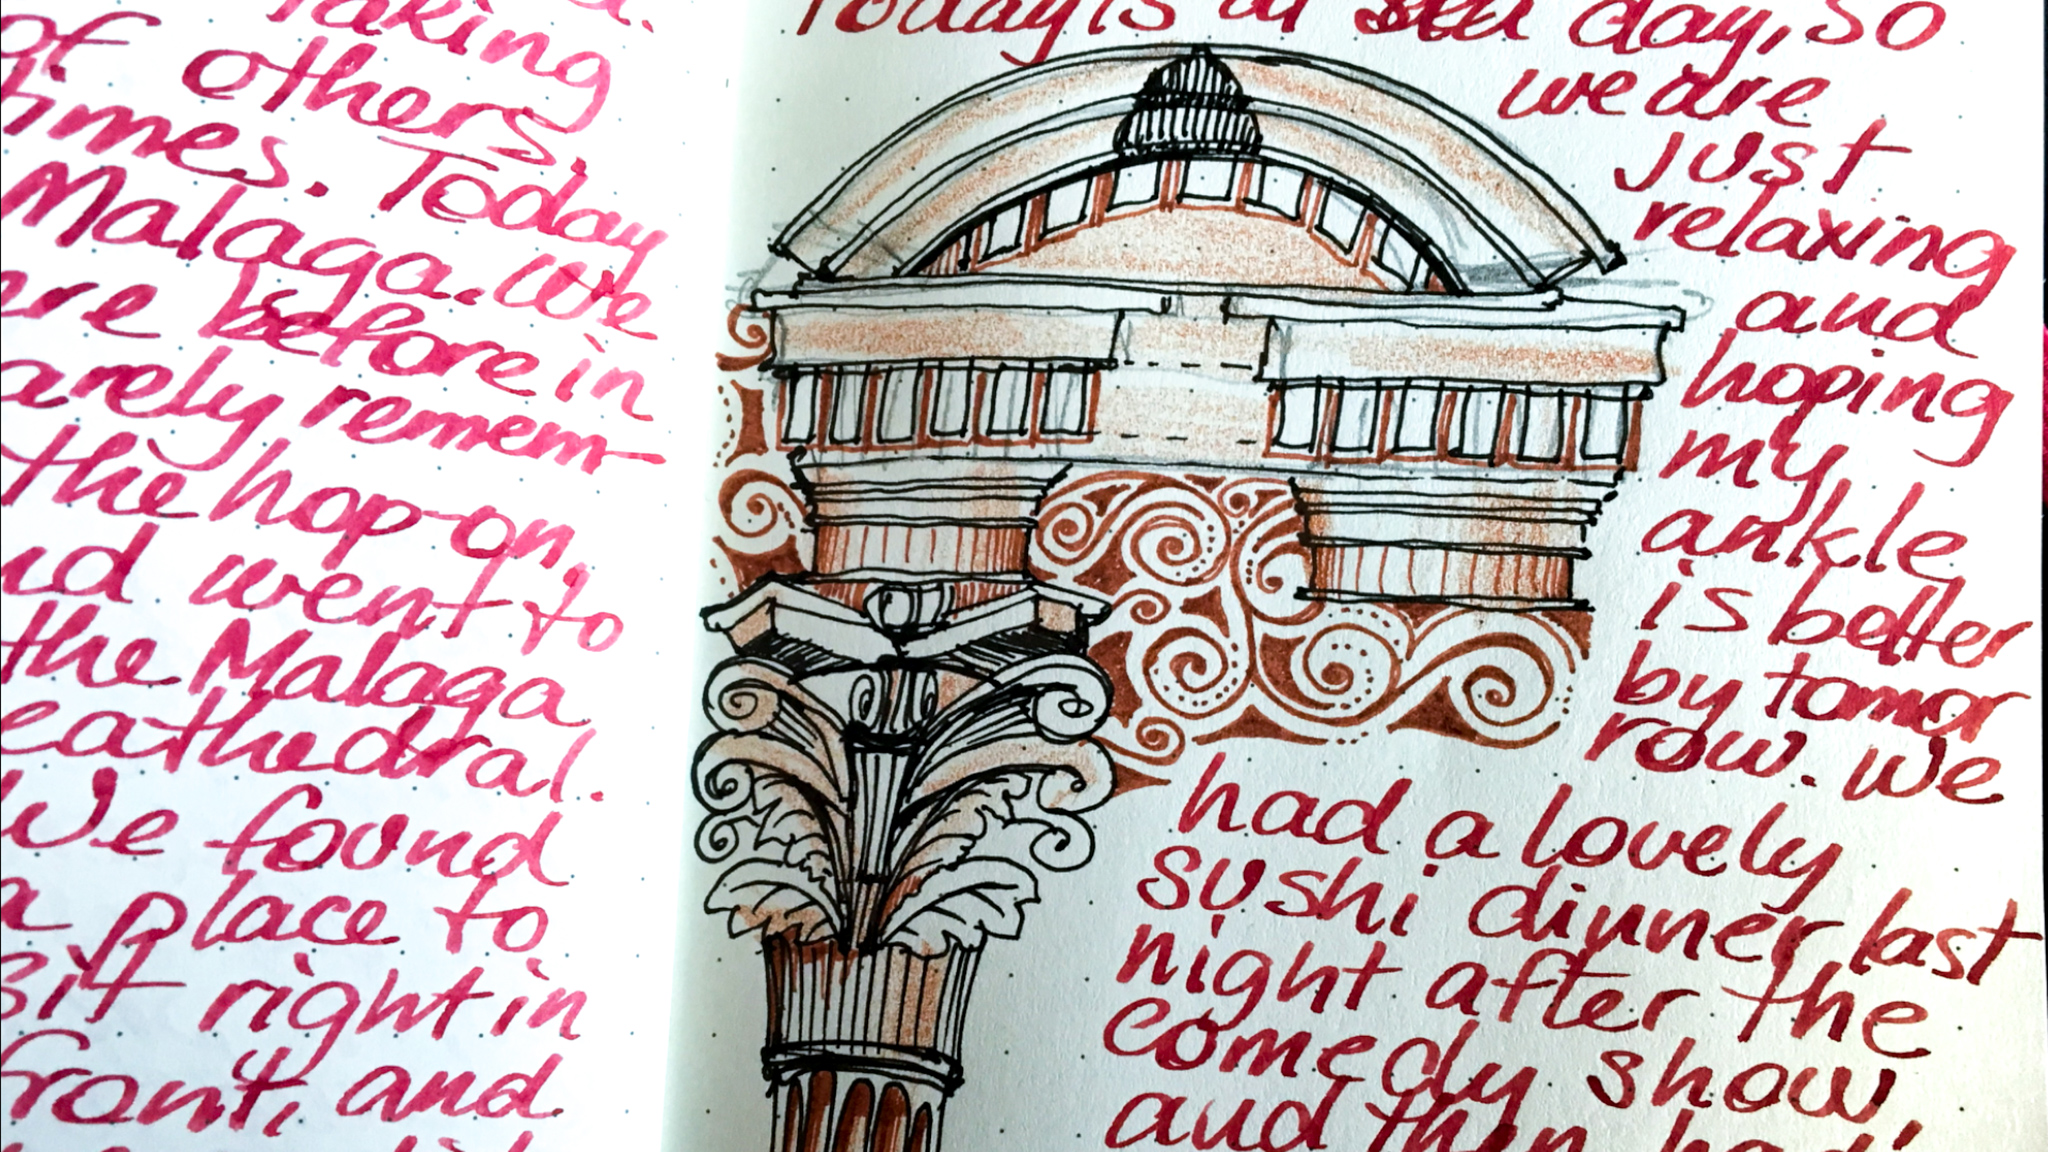 taking
of others.
times. Today
Malaga. We
before in
remem-
the hop-on,
went to
the Malaga
cathedral.
We found
a place to
sit right in
front, and
Today is at sea day, so
we are
just
relaxing
and
hoping
my
ankle
is better
by tomor
row. we
had a lovely
sushi dinner last
night after the
comedy show,
and then had